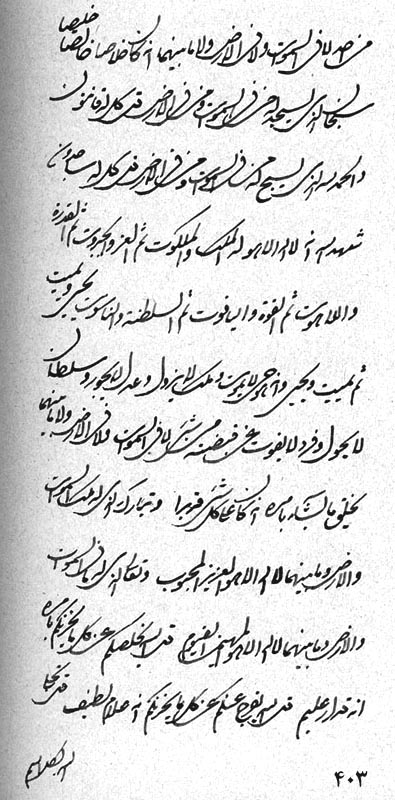 من احد لا في السموات ولا في الارض ولا ما بينهما انه كان خلاصا خالصا خليصا
سبحان الذي يسجد له من في السموات ومن في الارض قل كل له قانتون
والحمد لله الذي يسبح له من في السموات ومن في الارض قل كل له ساجدون
شهد الله انه لا اله الا هو له الملك والملكوت ثم العز والجبروت ثم القدرة
واللاهوت ثم القوة والياقوت ثم السلطنة والناسوت يحيي ويميت
ثم يميت ويحيي وانه هو حي لا يموت وملك لا يزول وعدل لا يجور وسلطان
لا يحول وفرد لا يفوت عن قبضته من شيء لا في السموات ولا في الارض ولا ما بينهما
يخلق ما يشاء بامره انه كان على كل شيء قديرا وتبارك الذي له ملك السموات
والارض وما بينهما لا اله الا هو العزيز المحبوب وتعالى الذي له ما في السموات
والارض وما بينهما لا اله الا هو المهيمن القيوم قل الله يخلصنكم عن كل ما يحزنكم بامره
انه قدار عليم قل الله يفرج عنكم عن كل ما يحزنكم انه خلاق لطيف قل
۴۰۳